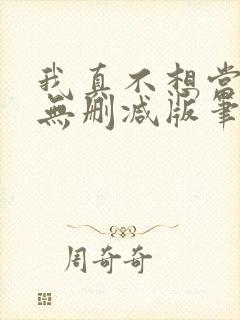 我真不想當
無刪減版筆
周奇奇